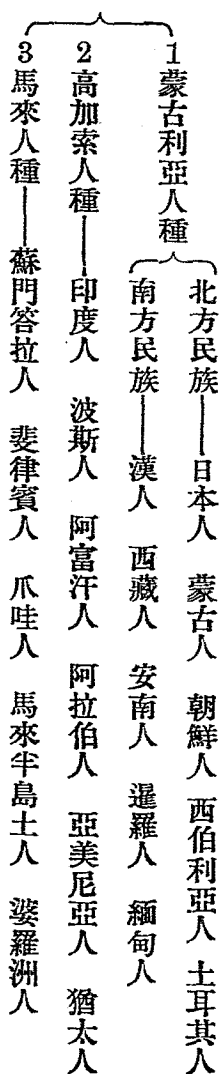 1蒙古利亞人種
北方民族——日本人 蒙古人 朝鮮人 西伯利亞人 土耳其人
南方民族——漢人 西藏人 安南人 暹羅人 緬甸人
2高加索人種——印度人 波斯人 阿富汗人 阿拉伯人 亞美尼亞人 猶太人
3馬來人種——蘇門答拉人 斐律賓人 爪哇人 馬來半島土人 婆羅洲人